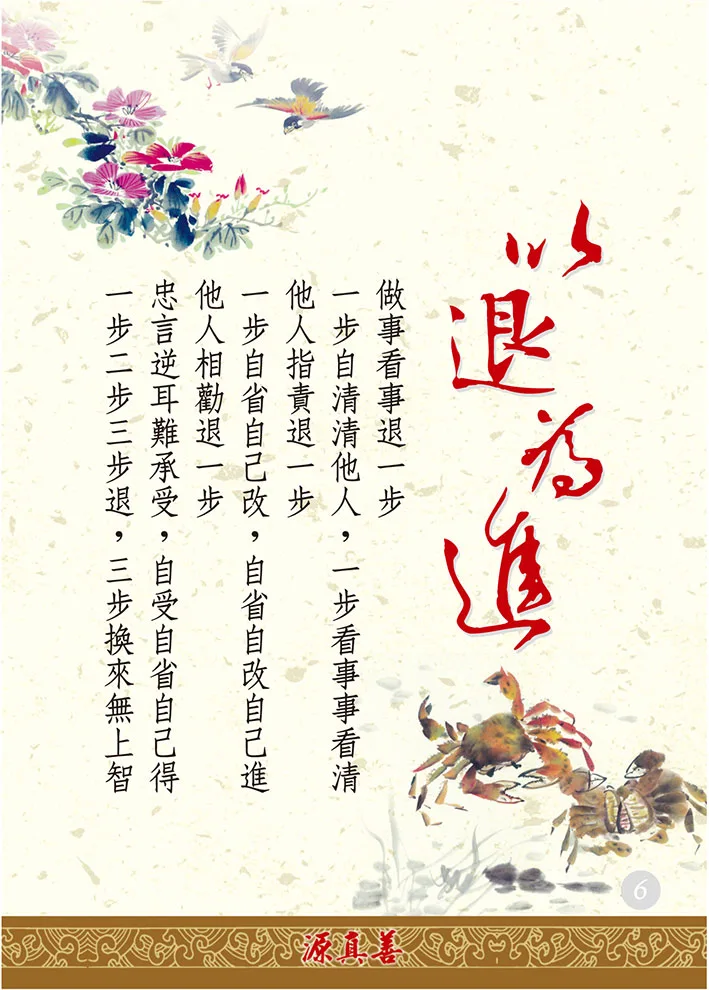 以退為進
做事看事退一步
一步自清清他人，一步看事事看清
他人指責退一步
一步自省自己改，自省自改自己進
他人相勸退一步
忠言逆耳難承受，自受自省自己得
一步二步三步退，三步換來無上智
6
源真善